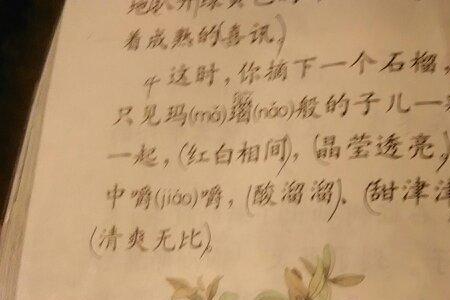 着成熟的(喜讯。)
这时，你摘下一个石榴，
只见玛(mǎ)瑙(nǎo)般的子儿一
一起，(红白相间)，(晶莹透亮。
中嚼(jiáo)嚼，(酸溜溜)、(甜津津
(清爽无比)。